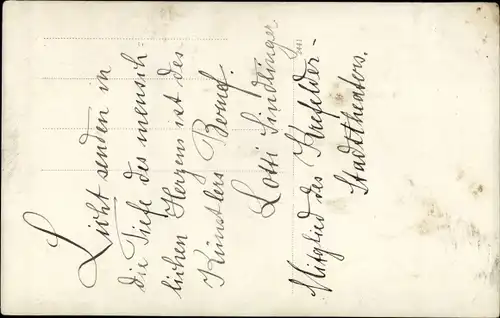 Licht senden in
die Tiefe des mensch-
lichen Herzens ist des
Künstlers Beruf.
Lotti Sindlinger
Mitglied des Krefelder-
Stadttheaters.